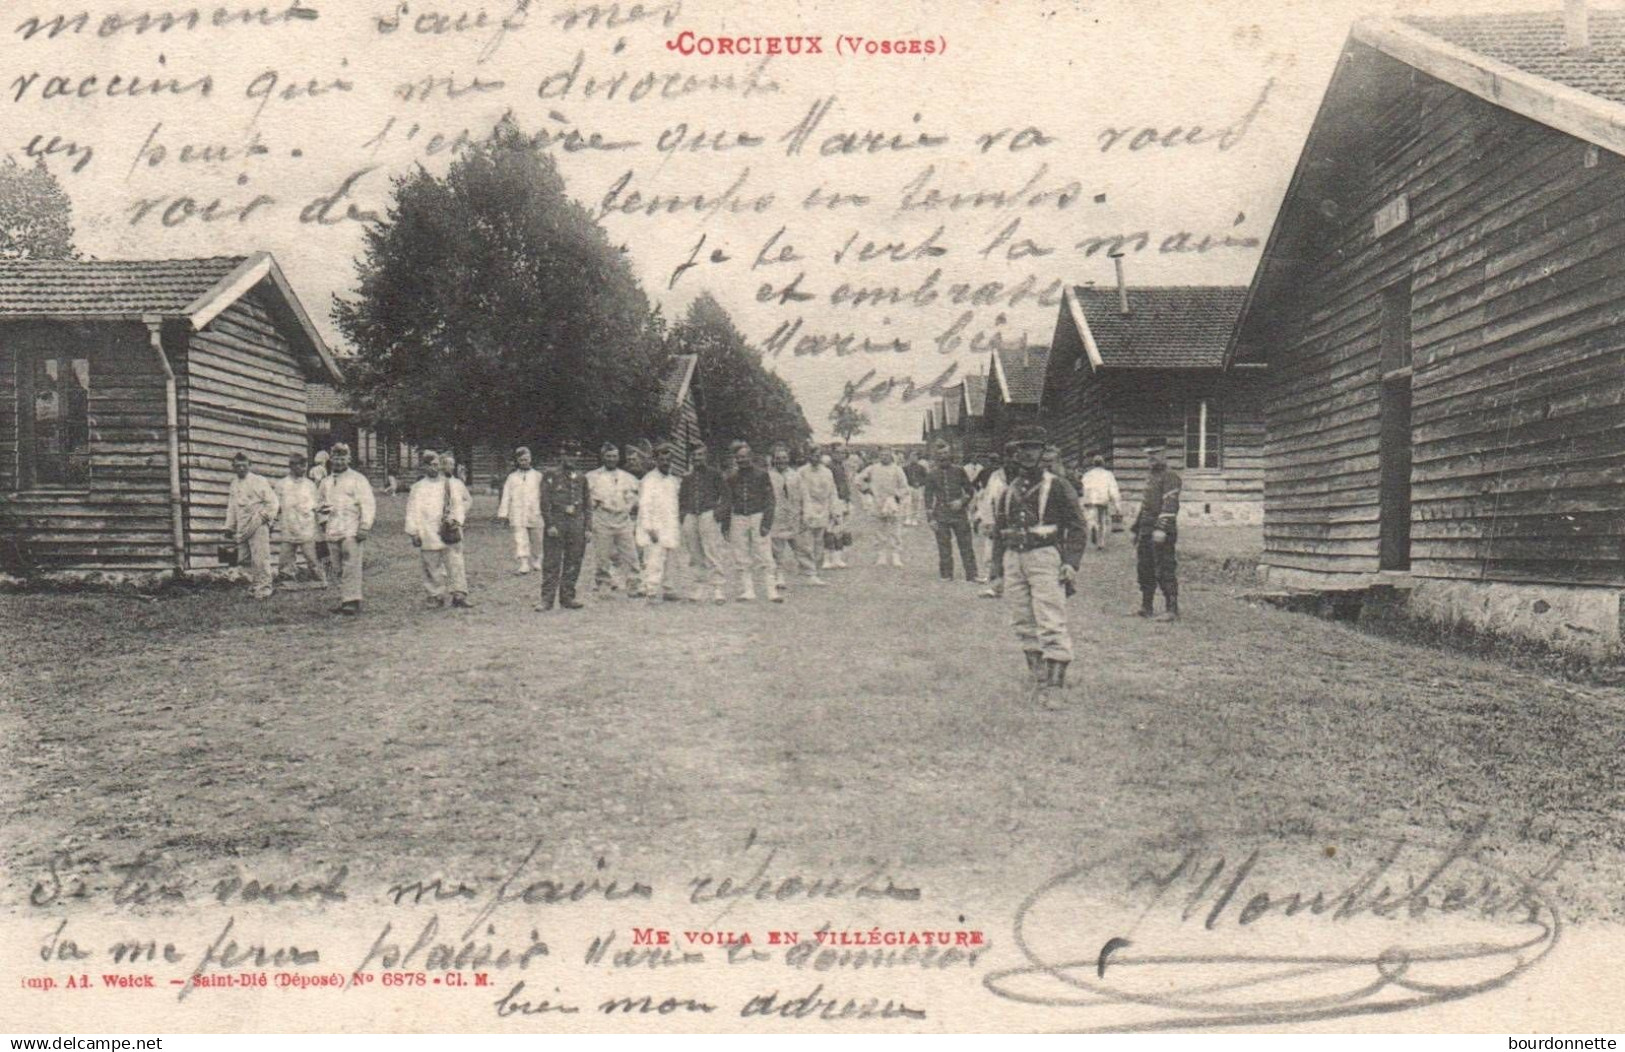 moment sauf mes
CORCIEUX (VOSGES)
vaccins qui me dévorent
un peut. J'espère que Marie va vous
voir de temps en temps.
je te sert la main
et embrasse
Marie bien
fort
Si tu veux me faire réponse
Sa me fera plaisir Marie te donneras
bien mon adresse
ME VOILA EN VILLÉGIATURE
Imp. Ad. Weick — Saint-Dié (Déposé) No 6878 - Cl. M.
delcampe.net
bourdonnette